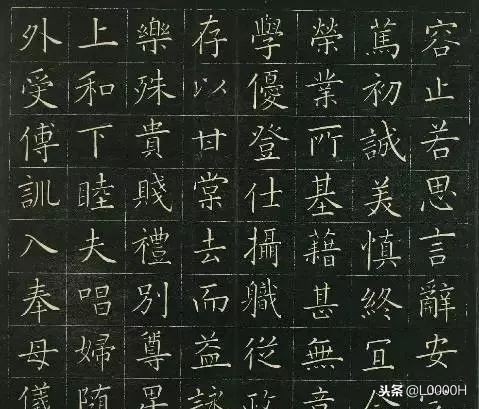 容止若思言辭安
篤初誠美慎終宜令
榮業所基藉甚無竟
學優登仕攝職從政
存以甘棠去而益詠
樂殊貴賤禮別尊卑
上和下睦夫唱婦随
外受傅訓入奉母儀
头条 @L0000H